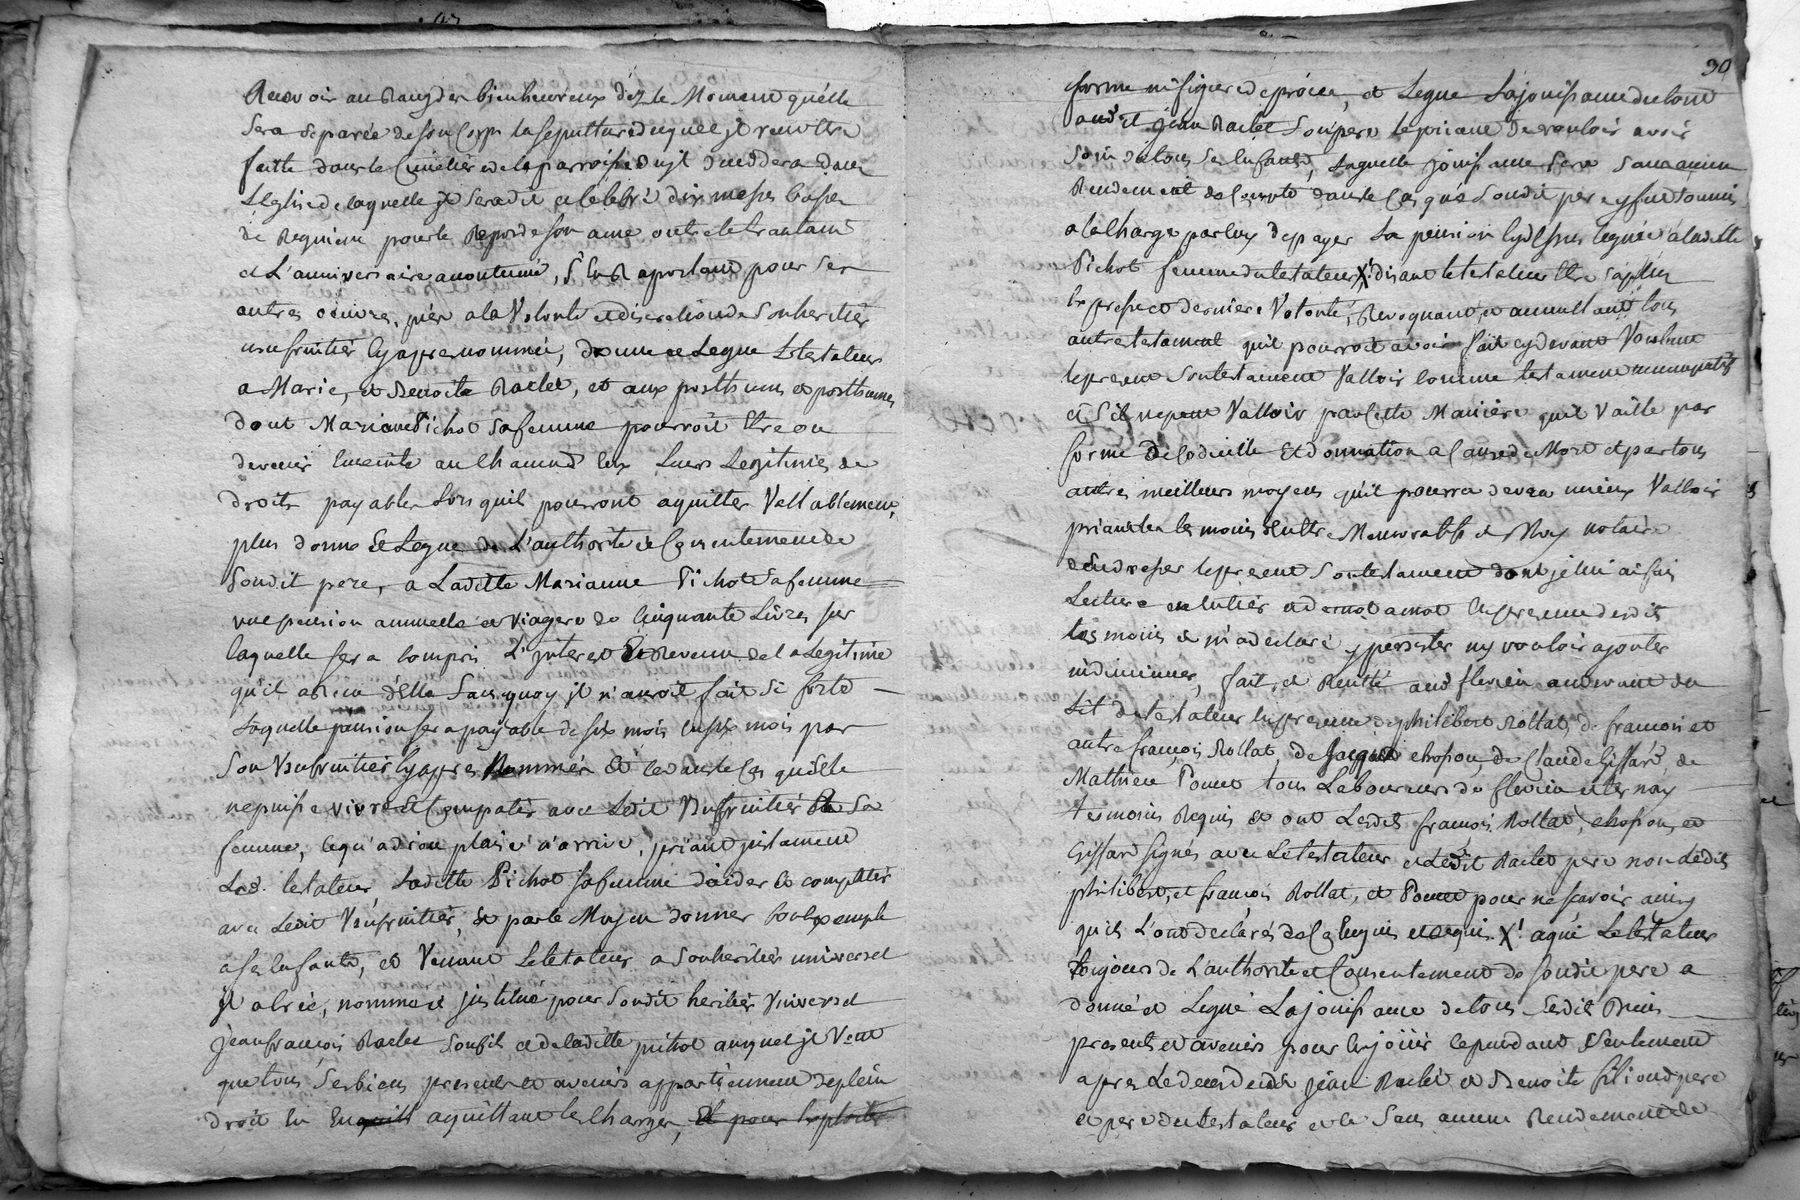 Recevoir au Rang des bienheureux dez le Moment qu'elle
Sera Separée de son Corps la sepulture duquel jl veut etre
faitte dans le Cimetiere de la parroisse ou jl deceddera dans
L'Eglise de laquelle jl sera dit et celebré dix messes basses
de Requiem pour le Repos de son ame outre le trantain
et L'anniversaire accoutumé, S'En Raportant pour ses
autres oeuvres pies a la Volonté et discretion de Son heritier
usufruitier cy apres nommé, donne et Legue Le testateur
a Marie, et Benoite Raclet, et aux posthumes et posthumes
dont Marianne Pichot sa femme pourroit Etre ou
devenir Enceinte au Chacun d'eux Leurs Legitimes de
droits payables Lors quil pourront aquitter Vallablement,
plus donne Et Legue de L'authorité et Consentement de
Soudit pere, a Laditte Marianne Pichot sa femme
une pension annuelle et viagere de Cinquante Livres sur
laquelle sera Compris L'jnteret Et Revenu de la Legitime
qu'il a d'Elle Sans quoy jl n'auroit fait Si forte
Laquelle pension sera payable de six mois en six mois par
Son Usufruitier cy apres Nommée Et ce dans le Cas qu'elle
ne puisse vivre Et Compatir avec Ledit Usufruitier Sa
femme, ce qu'a dieu plaise n'arrive, priant justament
Led. testateur Laditte Pichot sa femme d'aider Et compatir
avec Ledit Usufruitier, Et par ce Moyen donner bon Exemple
a ses Enfants, et Venant Le testateur a Son heritier universel
jl a Créé, nommé et jnstitué pour Soudit heritier Universel
jean francois Raclet Son fils et de laditte pichot auquel jl Veut
que tous Ses biens presents et avenirs appartiennent de plein
droit En aquittant les Charges, Et pour
30
forme ni figure de procez, et Legue La jouissance du tout
aud.t jean Raclet Son pere le priant de vouloir avoir
Soin de tous Ses Enfants, Laquelle jouissance Sera Sans aucun
Rendement de Compte dans le Cas qué Soudit pere y fut Soumis
a la Charge par luy de payer La pension Cy dessus leguée a laditte
Pichot femme du testateur X! disant le testateur Etre Sa plus
Expresse et derniere Volonté, Revoquant et annullant tous
autre testament quil pourroit avoir fait cy devant Voulant
le present Son testament Valloir Comme testament nuncupatif
et S'il ne peut Valloir par Cette Maniere qu'il Vaille par
forme De Codicille Et donnation a Cause de Mort et par tous
autres meilleurs moyens qu'il pourra devra mieux Valloir
priant les temoins d'Etre Memoratifs et Moy notaire
de dresser le present Son testament dont je lui ai fait
Lecture en Entier et de mot a mot En presence desdits
temoins et m'a declaré y persister ny vouloir ajouter
ni diminuer, fait et Recitté aud flerieu au devant du
Lit du testateur En presence de philibert Rollat, de francois et
autre francois Rollat, de jacques chosson, de Claude Giffard, de
Mathieu Poncet tous Laboureurs de flerieu et ternay
temoins Requis Et ont Lesdits francois Rollat, chosson, et
Giffard Signés avec Le testateur et Ledit Raclet pere non Ledits
philibert, et francois Rollat, et Poncet pour ne scavoir ainsy
qu'ils L'ont declarés de Ce Enquis et requis. X! aqué Le testateur
toujours de L'authorité et Consentement de Soudit pere a
donné et Legué La jouissance de tous Sesdits Biens
presents et avenirs pour En jouir Cependant Seulement
apres Le deces dudit jean Raclet et Benoite
et pere du testateur et Ce Sans aucun Rendement de